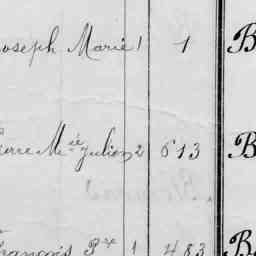 Joseph Marie 1 1 B
Pierre Mie Julien 2 613 B
François Px 1 483 B